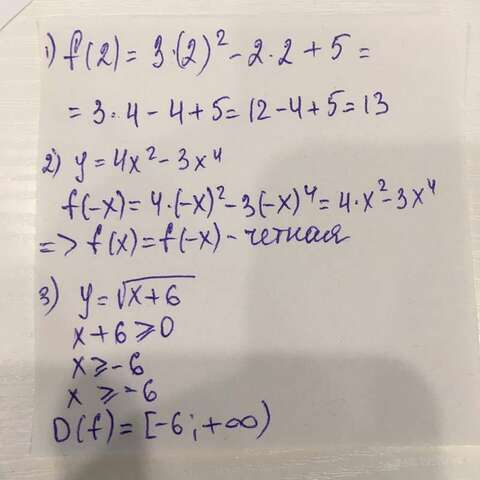 1) f(2) = 3·(2)² - 2·2 + 5 =
= 3·4 - 4 + 5 = 12 - 4 + 5 = 13
2) y = 4x² - 3x⁴
f(-x) = 4·(-x)² - 3(-x)⁴ = 4·x² - 3x⁴
=> f(x) = f(-x) - четная
3) y = √(x+6)
x + 6 ⩾ 0
x ⩾ -6
x ⩾ -6
D(f) = [-6; +∞)